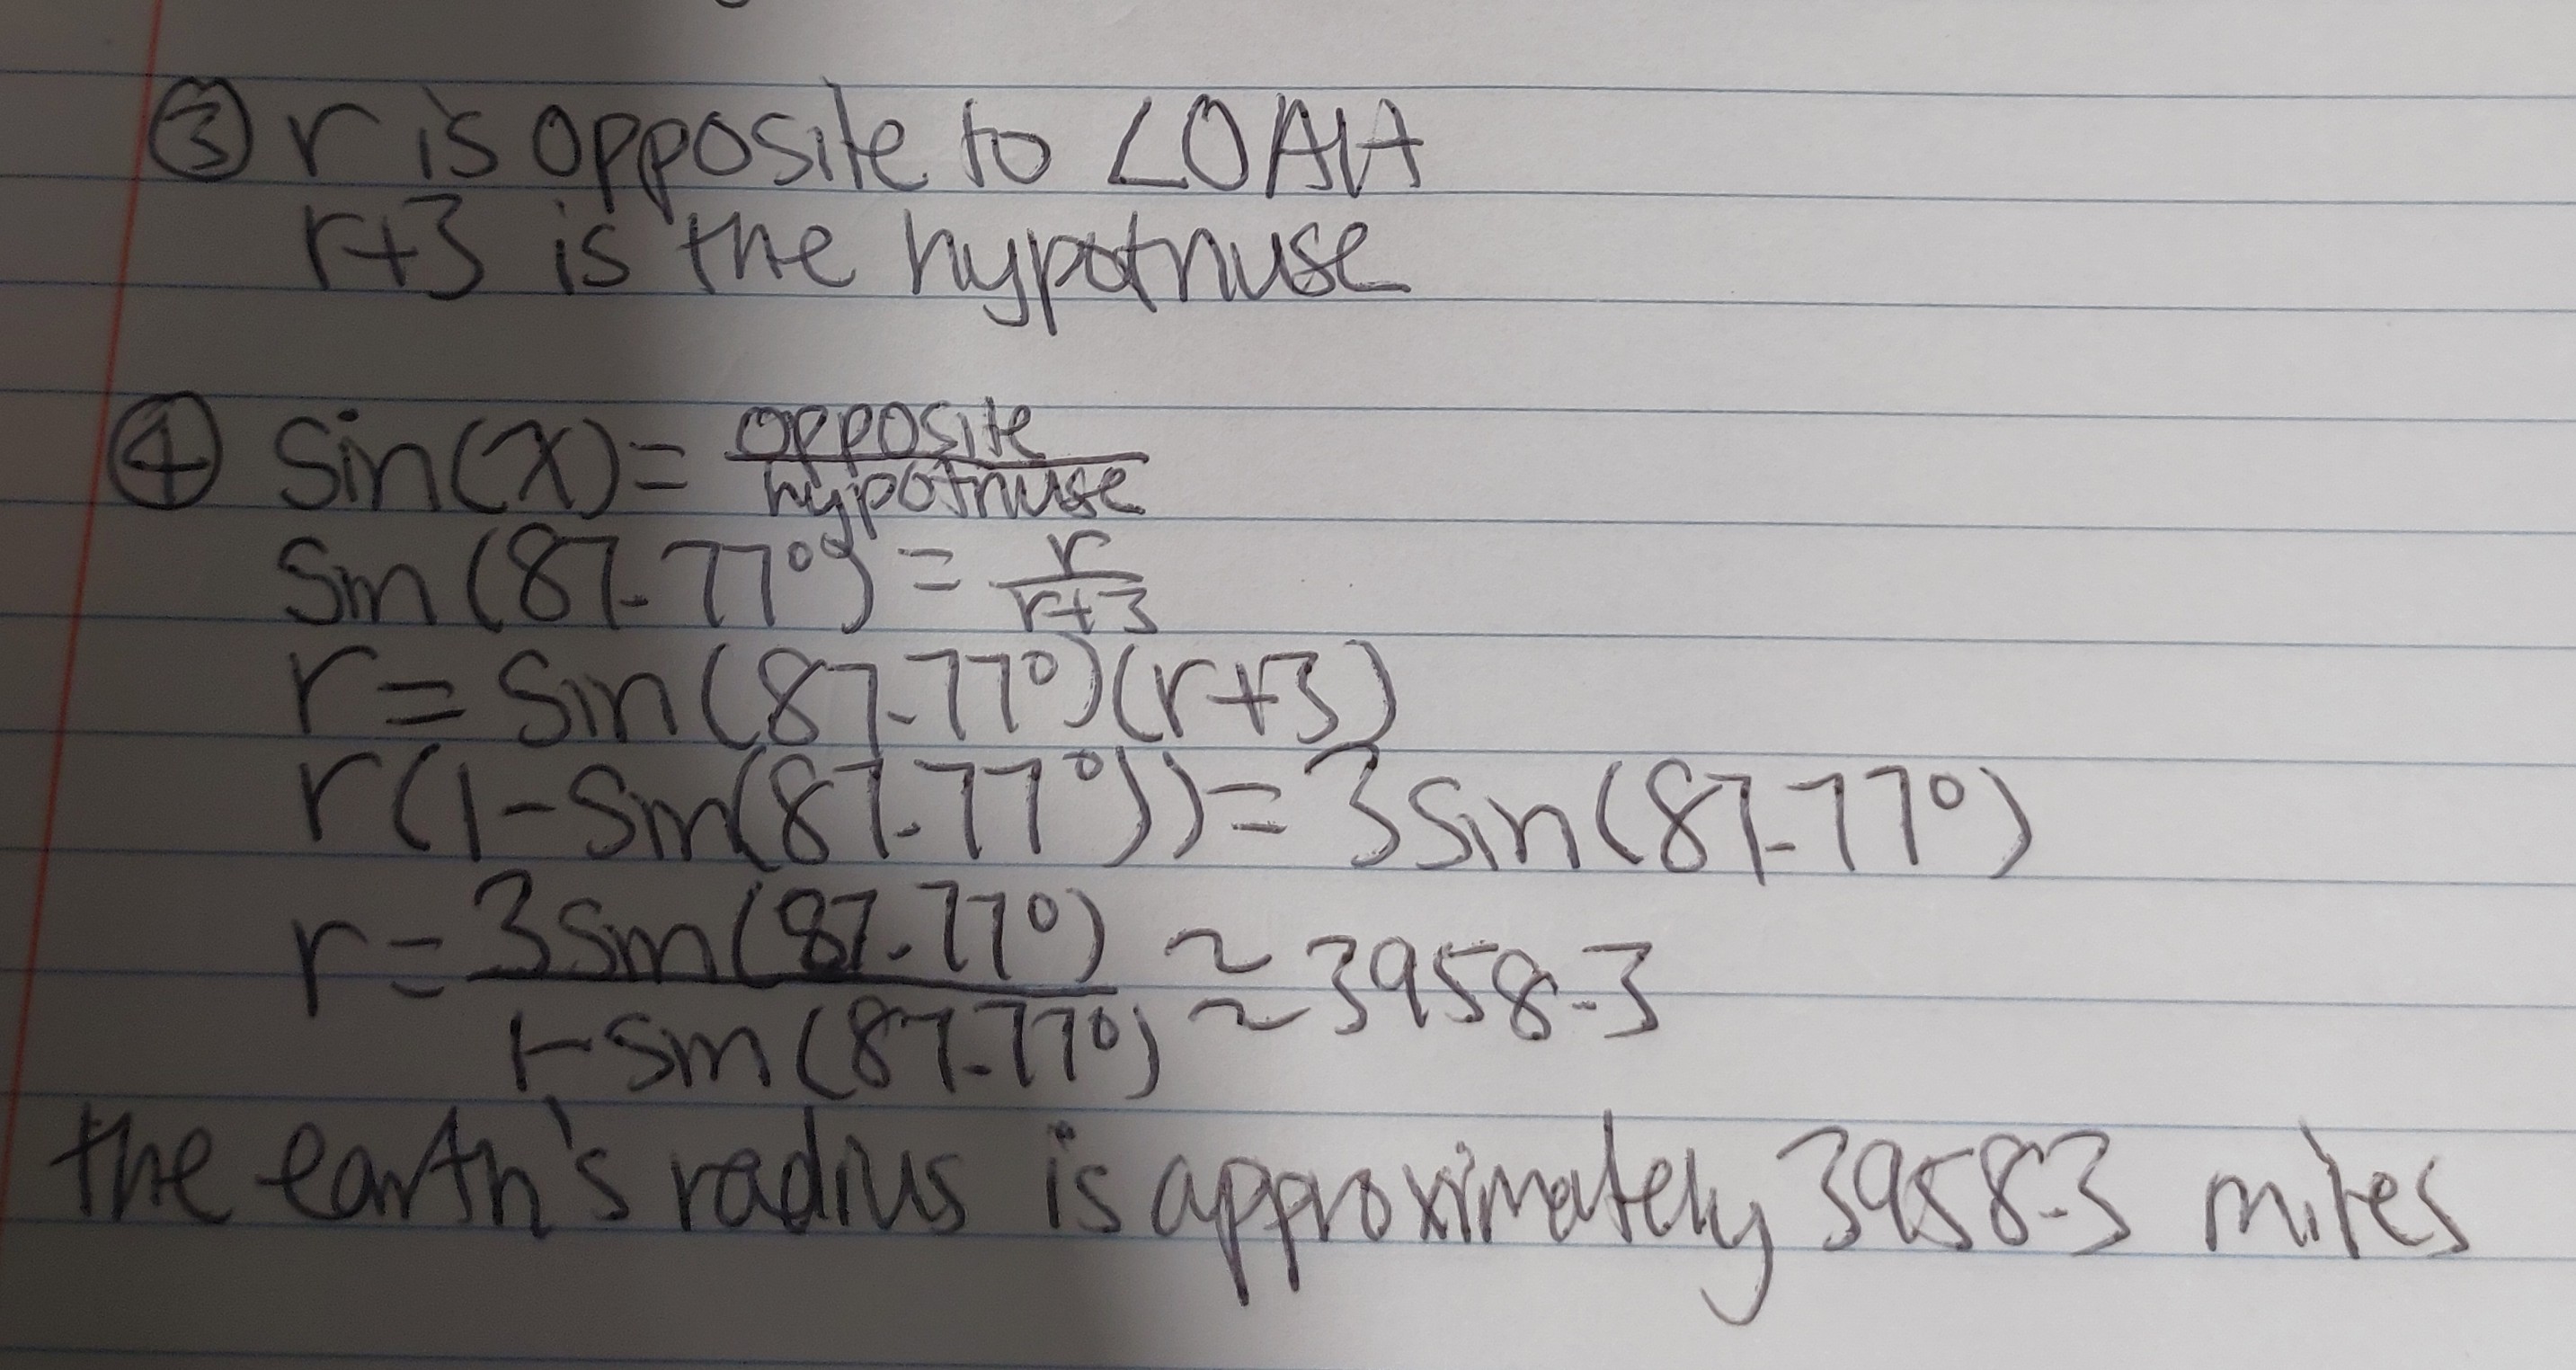 ③ r is opposite to ∠OAH
r+3 is the hypotnuse
④ Sin(x) = opposite/hypotnuse
Sin(87.77°) = r/r+3
r = Sin(87.77°)(r+3)
r(1-Sin(87.77°)) = 3Sin(87.77°)
r = 3Sin(87.77°)/1-Sin(87.77°) ≈ 3958.3
the earth's radius is approximately 3958.3 miles